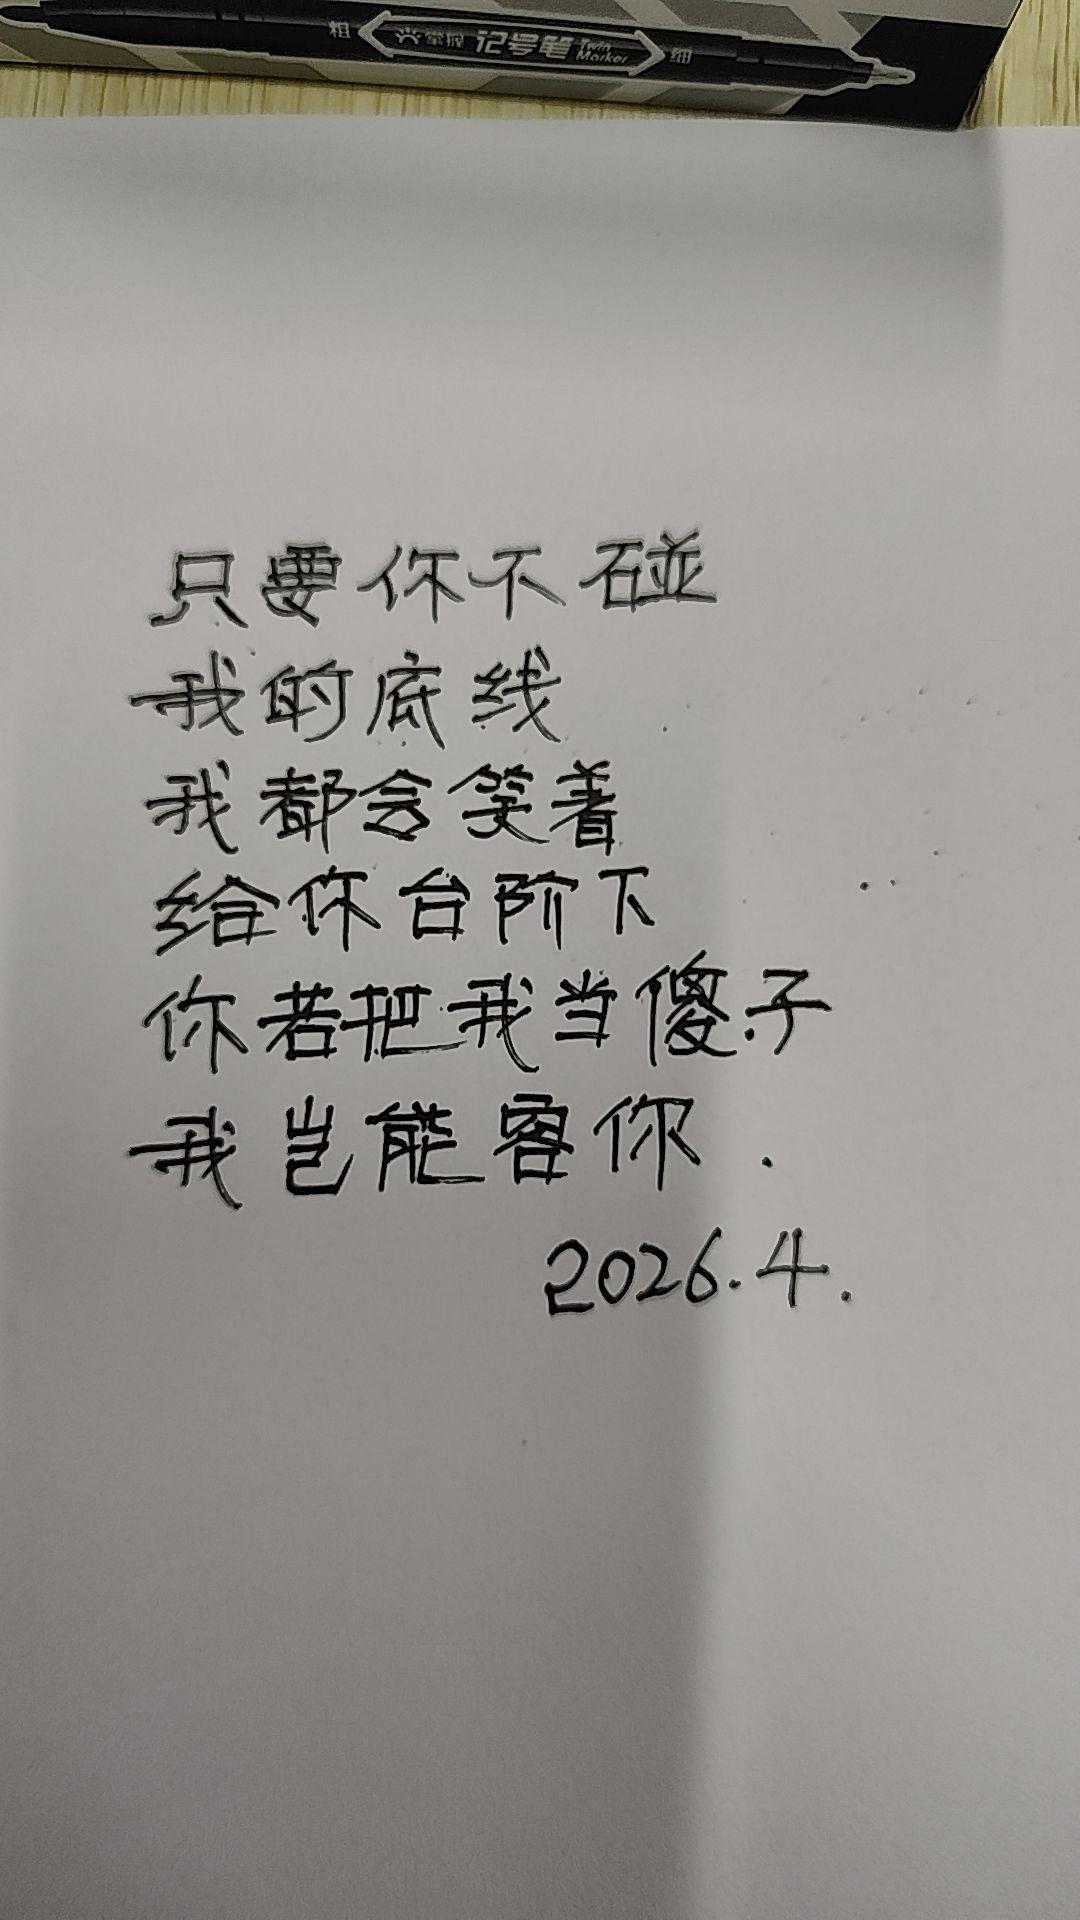 粗 水 记号笔 Marker 细
只要你不碰
我的底线
我都会笑着
给你台阶下
你若把我当傻子
我岂能容你.
2026.4.